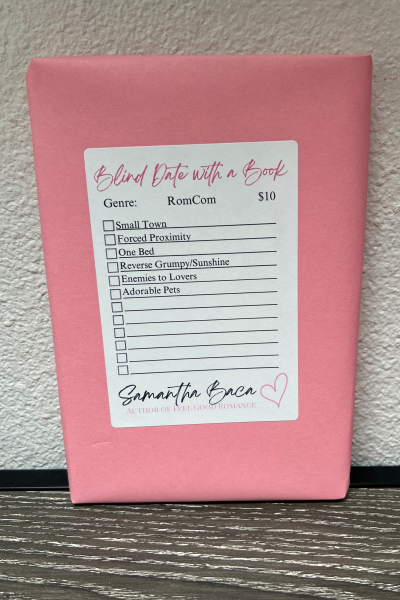 Blind Date with a Book
Genre: RomCom $10
Small Town
Forced Proximity
One Bed
Reverse Grumpy/Sunshine
Enemies to Lovers
Adorable Pets
Samantha Baca
AUTHOR OF FEEL GOOD ROMANCE